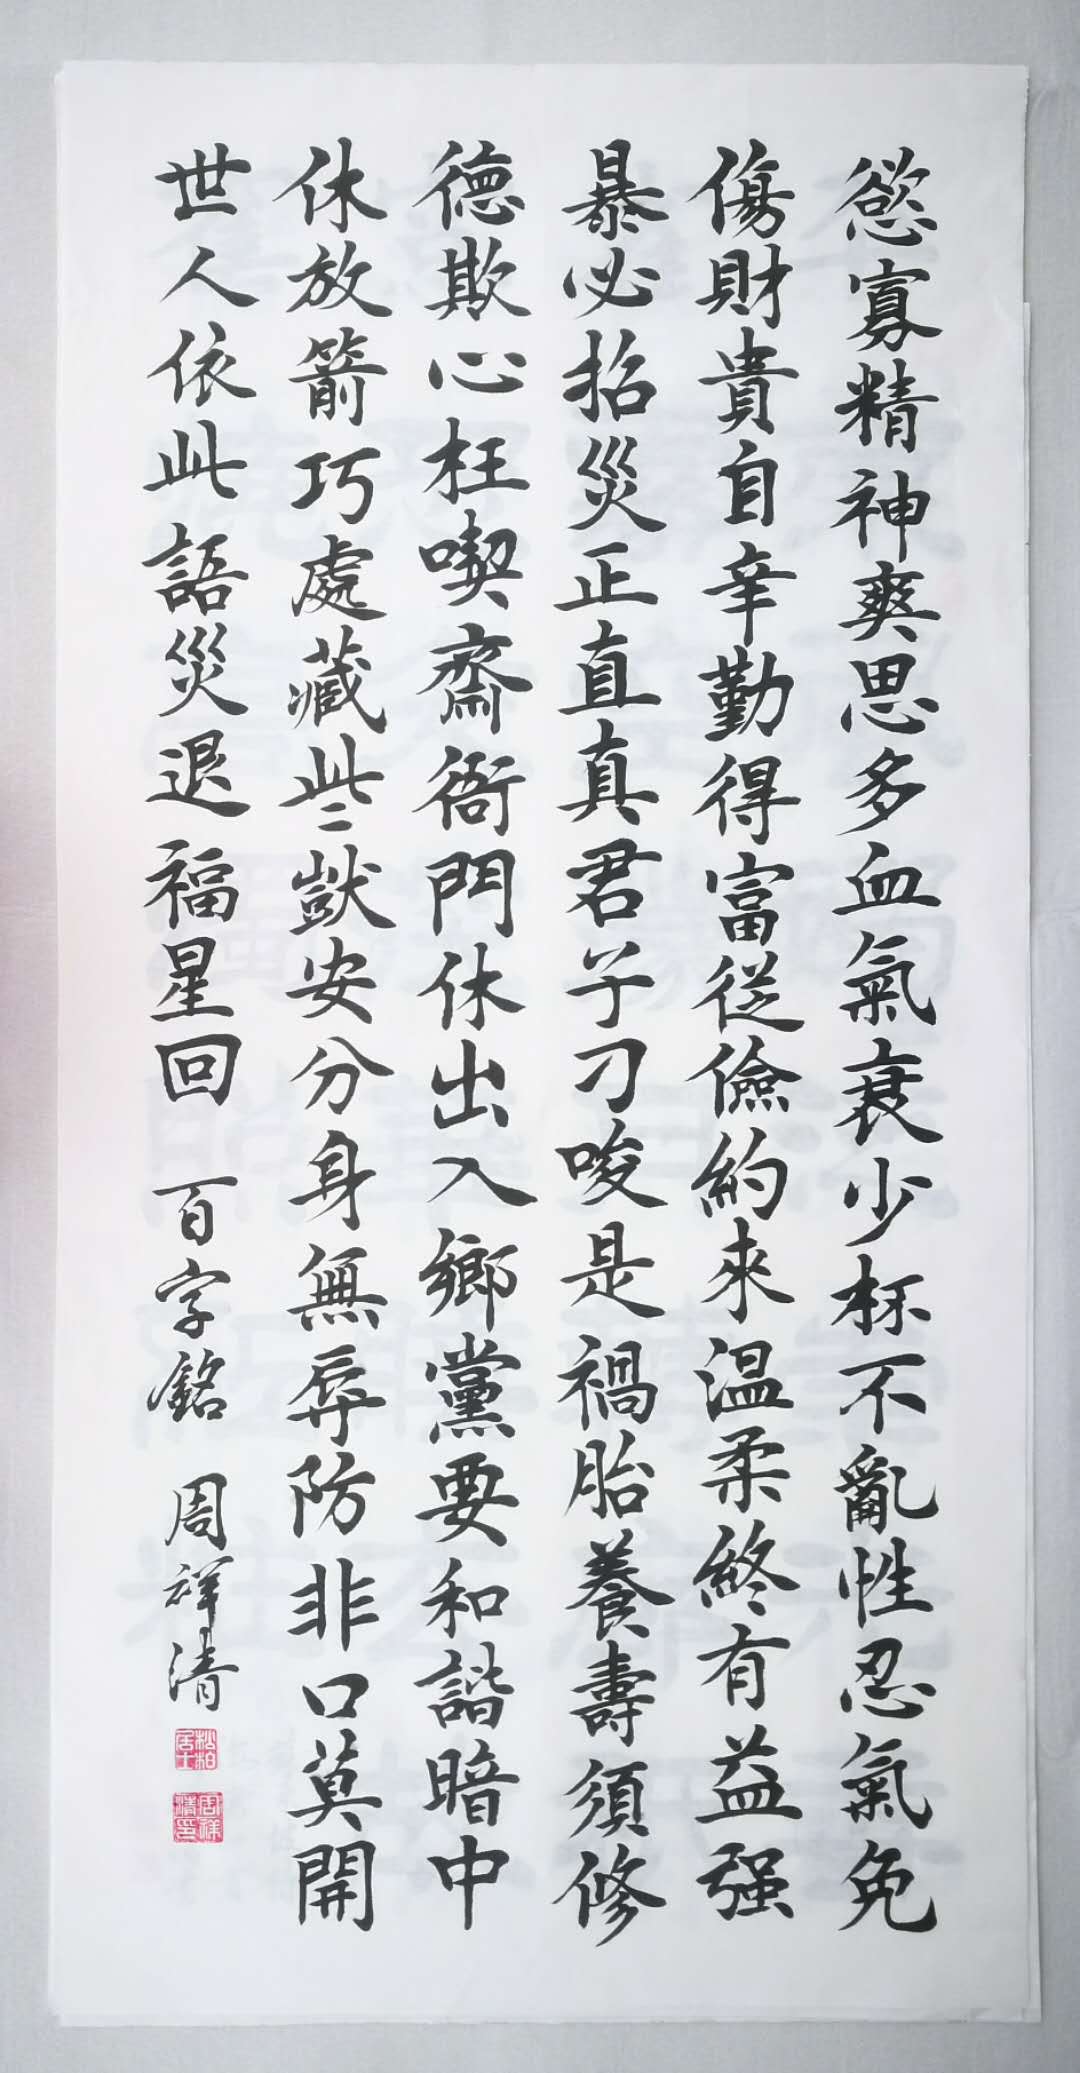 慾寡精神爽思多血氣衰少杯不亂性忍氣免
傷財貴自辛勤得富従儉約來温柔終有益强
暴必招災正直真君子刁唆是禍胎養壽須修
德欺心枉喫齋衙門休出入鄉黨要和諧暗中
休放箭巧處藏些獃安分身無辱防非口莫開
世人依此語災退福星回 百字銘 周祥清
松柏居士
周祥清印